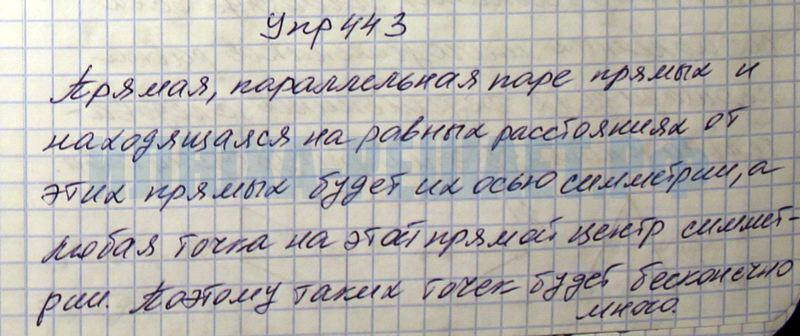 Упр 443
Прямая, параллельная паре прямых и
находящаяся на равных расстояниях от
этих прямых будет их осью симметрии, а
любая точка на этой прямой центр симмет-
рии. Поэтому таких точек будет бесконечно
много.